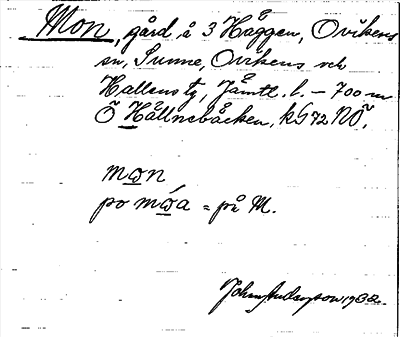 Mon, gård å 3 Häggen, Ovikens
sn, Sunne, Ovikens och
Hallens tg, Jämtl. l. – 700 m
Ö Hållnebäcken, kG 72 NÖ.
mon
po móa = på M.
John Andersson 1932.